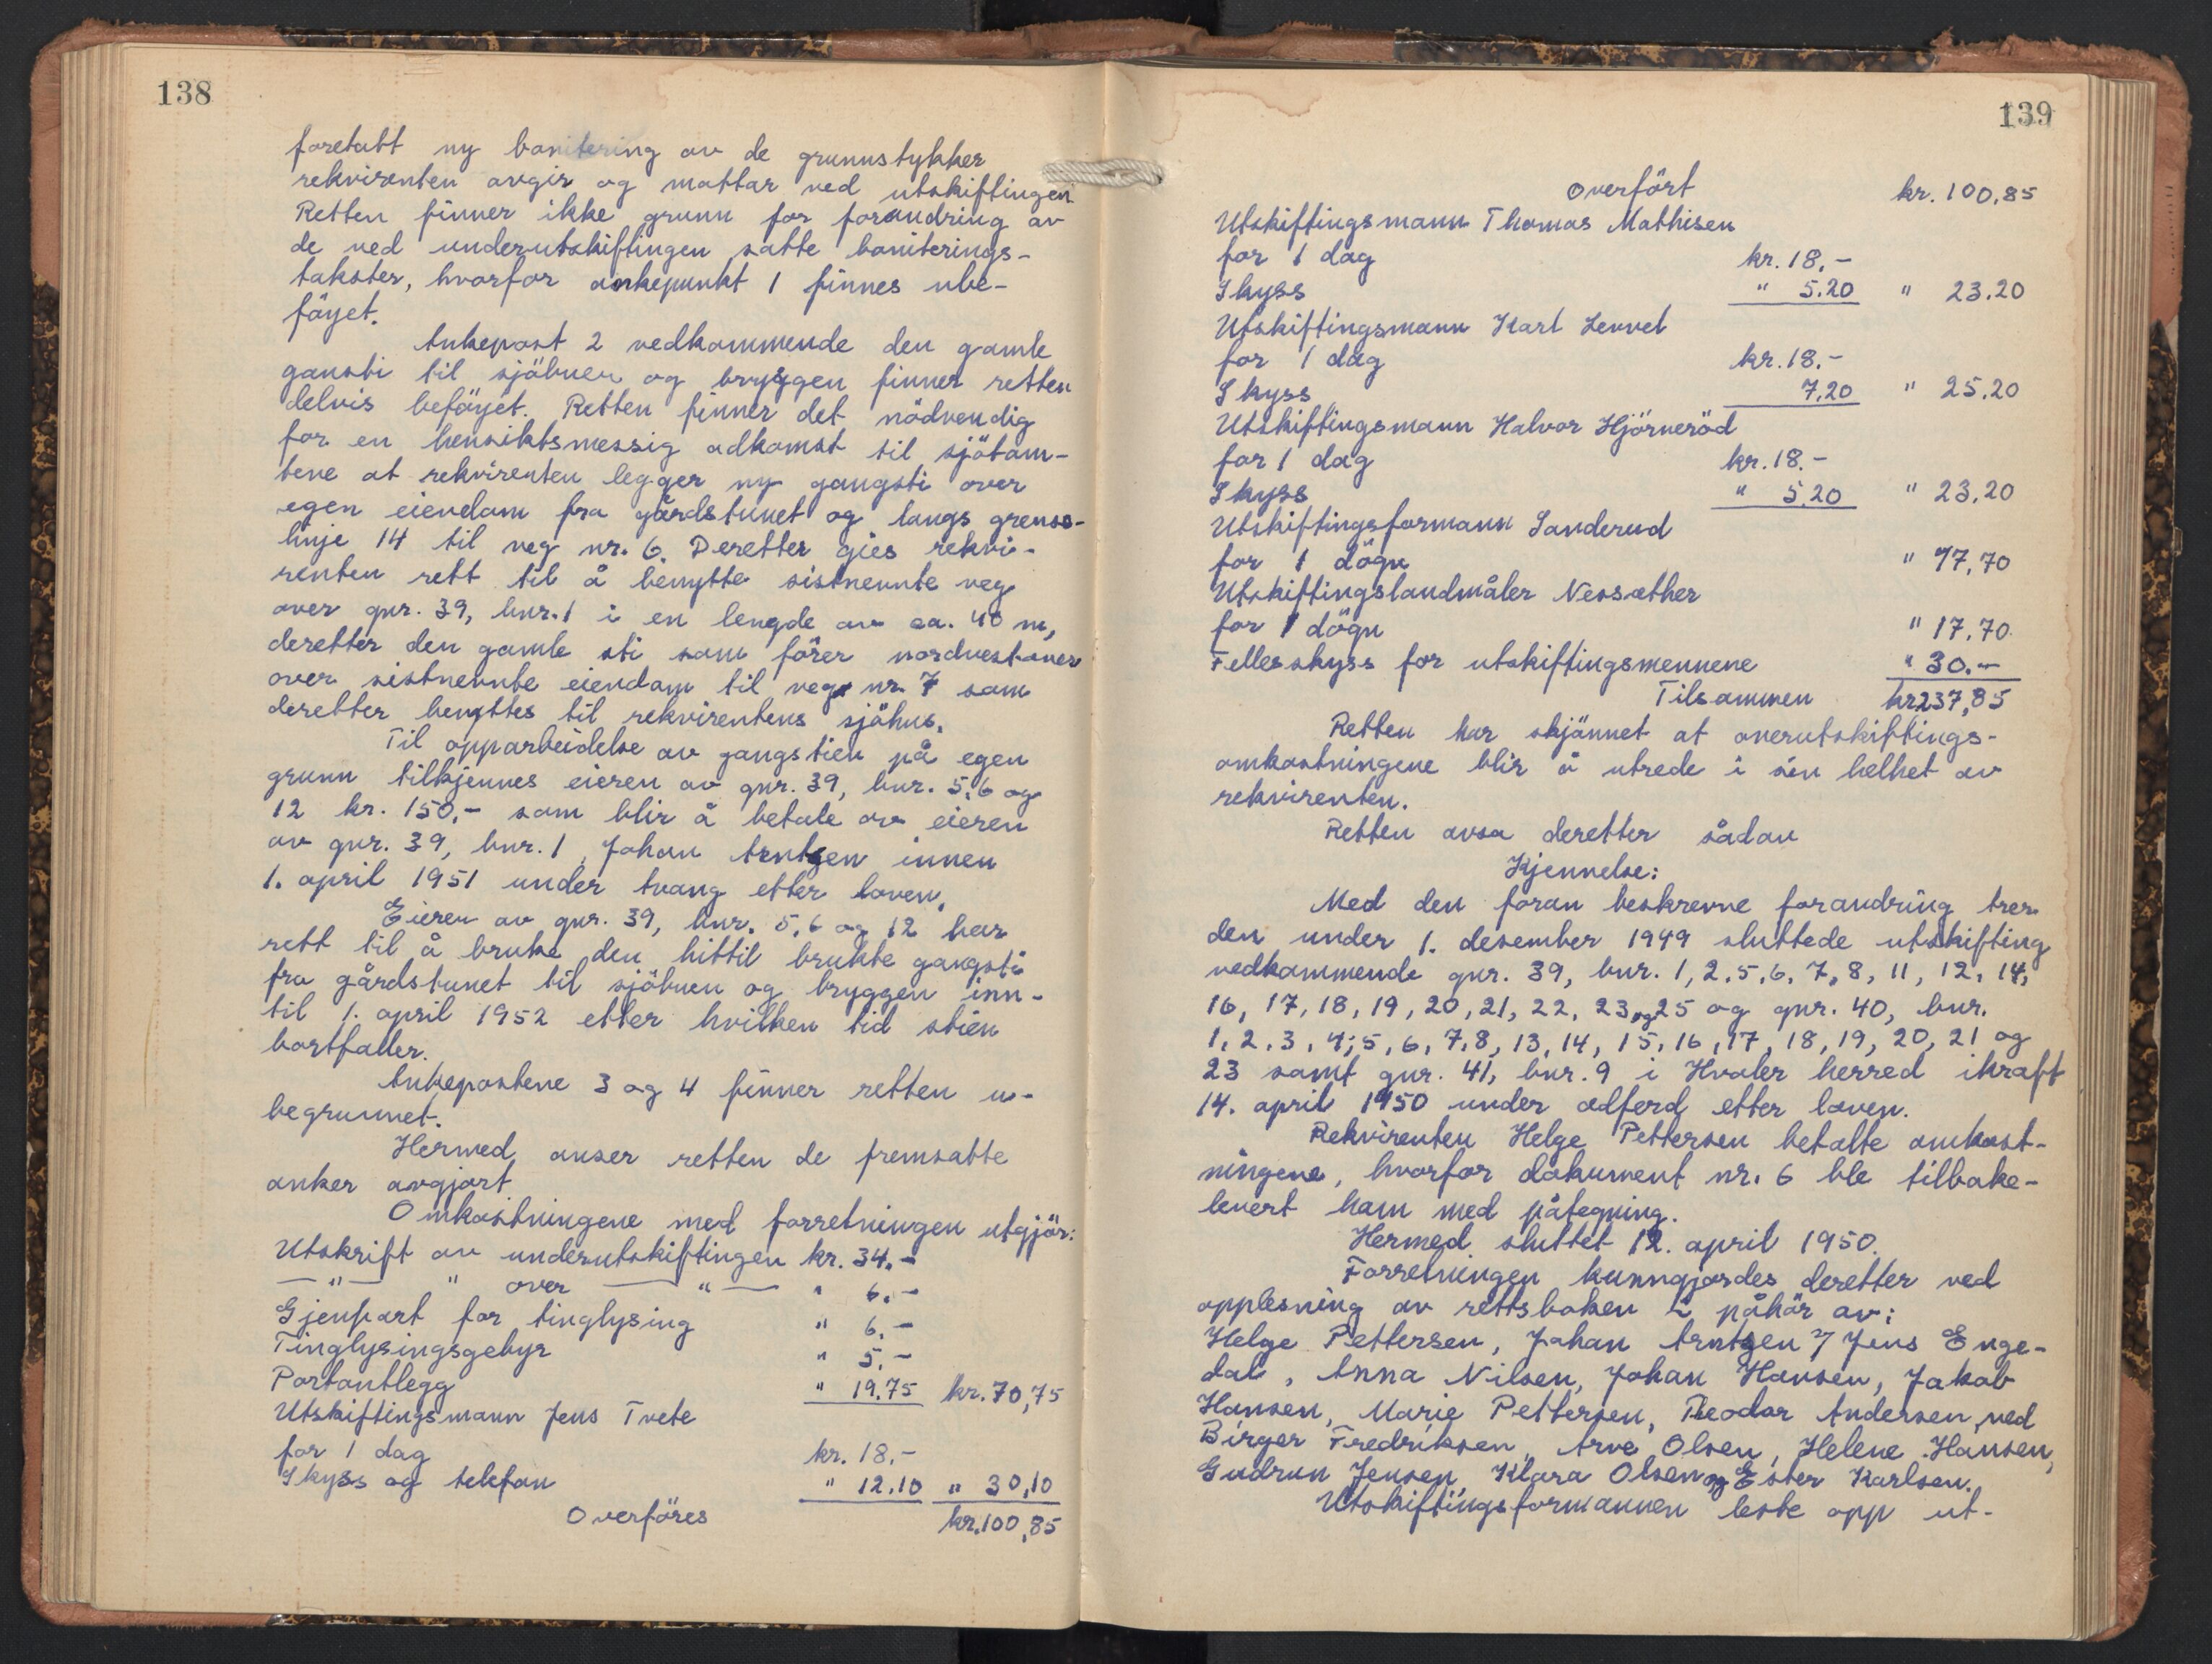 138
foretatt ny bonitering av de grunnstykker
rekvirenten avgir og mottar ved utskiftingen
Retten finner ikke grunn for forandring av
de ved underutskiftingen satte boniterings-
takster, hvorfor ankepunkt 1 finnes ube-
föyet.
Ankepost 2 vedkommende den gamle
gansti til sjöbuen og bryggen finner retten
delvis beföyet. Retten finner det nödvendig
for en hensiktsmessig adkomst til sjötom-
tene at rekvirenten legger ny gangsti over
egen eiendom fra gårdstunet og langs grense-
linje 14 til veg nr. 6. Deretter gies rekvi-
renten rett til å benytte sistnevnte veg
over gnr. 39, bnr. 1 i en lengde av ca. 40 m,
deretter den gamle sti som förer nordvestover
over sistnevnte eiendom til veg nr. 7 som
deretter benyttes til rekvirentens sjöhus.
Til opparbeidelse av gangstien på egen
grunn tilkjennes eieren av gnr. 39, bnr. 5,6 og
12 kr. 150,- som blir å betale av eieren
av gnr. 39, bnr. 1, Johan Arntzen innen
1. april 1951 under tvang etter loven.
Eieren av gnr. 39, bnr. 5,6 og 12 har
rett til å bruke den hittil brukte gangsti
fra gårdstunet til sjöbuen og bryggen inn-
til 1. april 1952 etter hvilken tid stien
bortfaller.
Ankepostene 3 og 4 finner retten u-
begrunnet.
Hermed anser retten de fremsatte
anker avgjort
Omkostningene med forretningen utgjör:
Utskrift av underutskiftingen kr. 34.-
—"— " over —"— " 6.-
Gjenpart for tinglysing " 6.-
Tinglysingsgebyr " 5.-
Portoutlegg " 19.75 kr. 70,75
Utskiftingsmann Jens Tvete
for 1 dag kr. 18.-
Skyss og telefon " 12.10 " 30,10
Overföres kr. 100,85
139
Overfört kr. 100,85
Utskiftingsmann Thomas Mathisen
for 1 dag kr. 18.-
Skyss " 5.20 " 23.20
Utskiftingsmann Karl
for 1 dag kr. 18.-
Skyss 7,20 " 25.20
Utskiftingsmann Halvor Hjörneröd
for 1 dag kr. 18.-
Skyss " 5.20 " 23.20
Utskiftingsformann Sanderud
for 1 dögn " 17,70
Utskiftingslandmåler Nessæther
for 1 dögn " 17.70
Fellesskyss for utskiftingsmennene " 30.-
Tilsammen kr 237,85
Retten har skjönnet at overutskiftings-
omkostningene blir å utrede i sin helhet av
rekvirenten.
Retten avsa deretter sådan
Kjennelse:
Med den foran beskrevne forandring trer
den under 1. desember 1949 sluttede utskifting
vedkommende gnr. 39, bnr. 1, 2, 5, 6, 7, 8, 11, 12, 14,
16, 17, 18, 19, 20, 21, 22, 23 og 25 og gnr. 40, bnr.
1, 2, 3, 4, 5, 6, 7, 8, 13, 14, 15, 16, 17, 18, 19, 20, 21 og
23 samt gnr. 41, bnr. 9 i Hvaler herred ikraft
14. april 1950 under adferd etter loven.
Rekvirenten Helge Pettersen betalte omkost-
ningene, hvorfor dokument nr. 6 ble tilbake-
levert ham med påtegning.
Hermed sluttet 12. april 1950.
Forretningen kunngjordes deretter ved
opplesning av rettsboken i påhör av:
Helge Pettersen, Johan Arntzen v/ Jens Enge-
dal, Anna Nilsen, Johan Hansen, Jakob
Hansen, Marie Pettersen, Teodor Andersen ved
Birger Fredriksen, Arve Olsen, Helene Hansen,
Gudrun Jensen, Klara Olsen og Ester Karlsen.
Utskiftingsformannen leste opp ut-